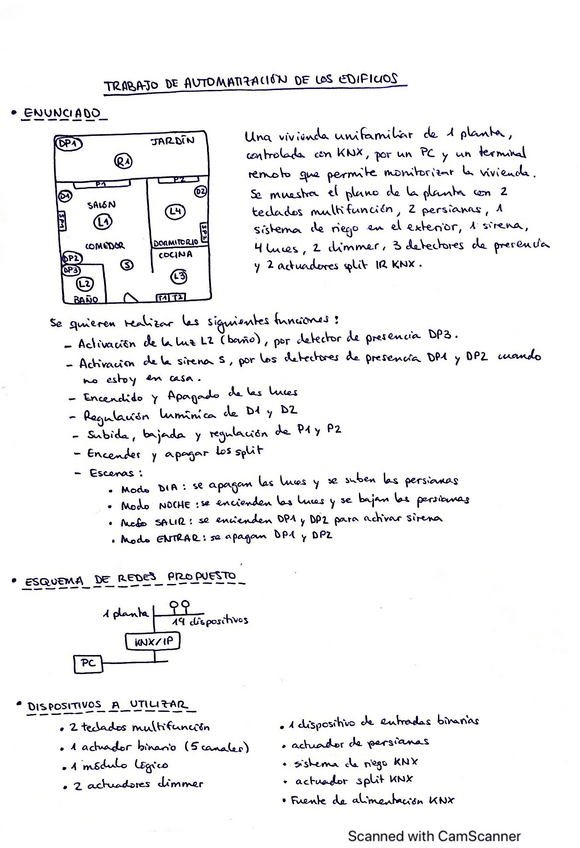 TRABAJO DE AUTOMATIZACIÓN DE LOS EDIFICIOS
• ENUNCIADO
DP1
JARDÍN
R1
P1
P2
D1
D2
SALÓN
L1
L4
COMEDOR
DORMITORIO
COCINA
DP2
DP3
S
L2
L3
BAÑO
T1 T2
Una vivienda unifamiliar de 1 planta,
controlada con KNX, por un PC y un terminal
remoto que permite monitorizar la vivienda.
Se muestra el plano de la planta con 2
teclados multifunción, 2 persianas, 1
sistema de riego en el exterior, 1 sirena,
4 luces, 2 dimmer, 3 detectores de presencia
y 2 actuadores split IR KNX.
Se quieren realizar las siguientes funciones:
- Activación de la luz L2 (baño), por detector de presencia DP3.
- Activación de la sirena S, por los detectores de presencia DP1 y DP2 cuando
no estoy en casa.
- Encendido y Apagado de las luces
- Regulación lumínica de D1 y D2
- Subida, bajada y regulación de P1 y P2
- Encender y apagar los split
- Escenas:
• Modo DIA: se apagan las luces y se suben las persianas
• Modo NOCHE: se encienden las luces y se bajan las persianas
• Modo SALIR: se encienden DP1 y DP2 para activar sirena
• Modo ENTRAR: se apagan DP1 y DP2
• ESQUEMA DE REDES PROPUESTO
1 planta
19 dispositivos
KNX/IP
PC
• DISPOSITIVOS A UTILIZAR
• 2 teclados multifunción
• 1 actuador binario (5 canales)
• 1 módulo lógico
• 2 actuadores dimmer
• 1 dispositivo de entradas binarias
• actuador de persianas
• sistema de riego KNX
• actuador split KNX
• Fuente de alimentación KNX
Scanned with CamScanner